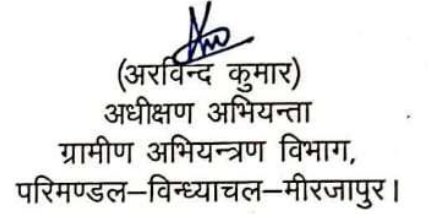 (अरविन्द कुमार)
अधीक्षण अभियन्ता
ग्रामीण अभियन्त्रण विभाग,
परिमण्डल–विन्ध्याचल–मीरजापुर।